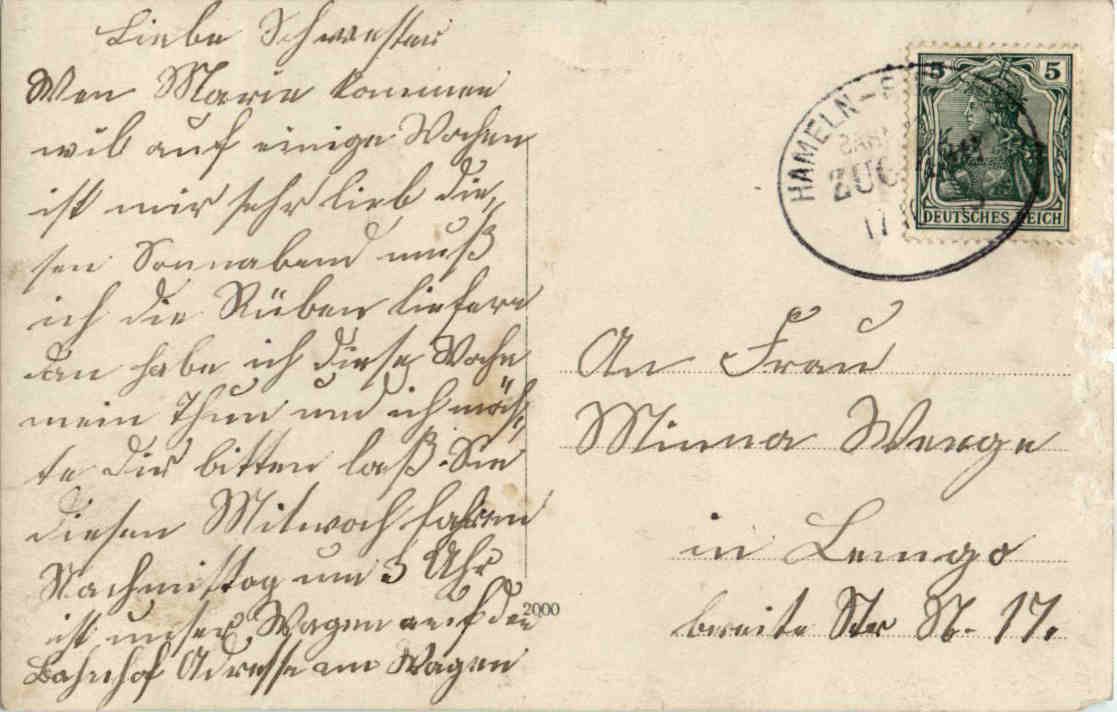 Liebe Schwester
Wen Marie kommen
wil auf einige Wochen
ist mir sehr lieb die,
sen Sonnabend muß
ich die Rüben liefern
dan habe ich diese Woche
mein Thun und ich möch,
te Dir bitten laß Sie
diesen Mitwoch fahren
Nachmittag um 3 Uhr
ist unser Wagen auf den
Bahnhof Adresse am Wagen
2000
HAMELN -
BAHN
ZUG
17
5 5
DEUTSCHES REICH
An Frau
Minna Wenge
in Lemgo
breite Str N. 17.